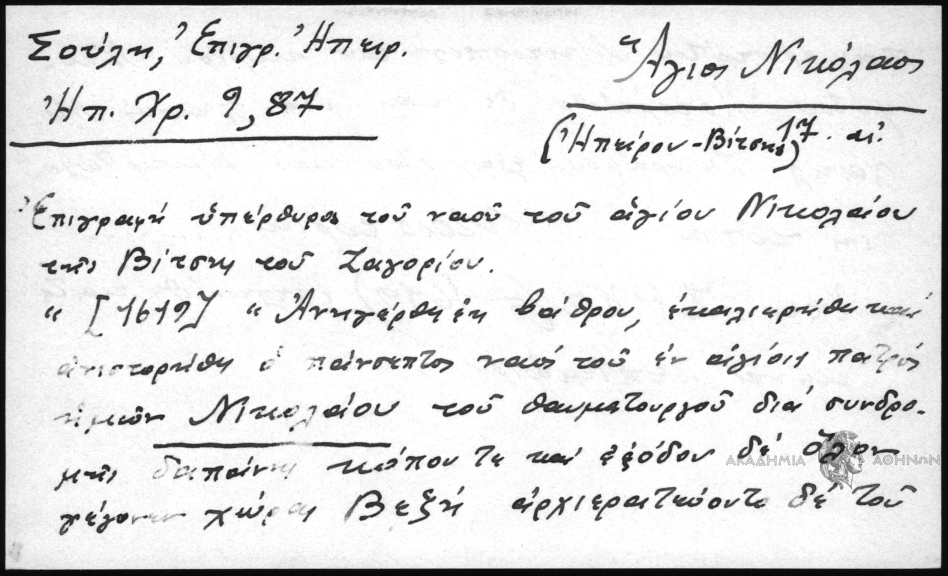 Σούλη, Ἐπιγρ. Ἠπειρ.
Ἠπ. Χρ. 9, 87
Ἅγιος Νικόλαος
(Ἠπείρου-Βίτσης) 17. αἰ.
Ἐπιγραφή ὑπέρθυρος τοῦ ναοῦ τοῦ ἁγίου Νικολάου
τῆς Βίτσης τοῦ Ζαγορίου.
" [1619] " Ἀνηγέρθη ἐκ βάθρου, ἐκαλιερτήθη καί
ἀνιστορήθη ὁ πάνσεπτος ναός τοῦ ἐν ἁγίοις πατρός
ἡμῶν Νικολάου τοῦ θαυματουργοῦ διά συνδρο-
μῆς δαπάνης κόπου τε καί ἐξόδου δέ ὅλον
γέγονεν χώρας Βεξῆ ἀρχιερατεύοντο δέ τοῦ
ΑΚΑΔΗΜΙΑ ΑΘΗΝΩΝ